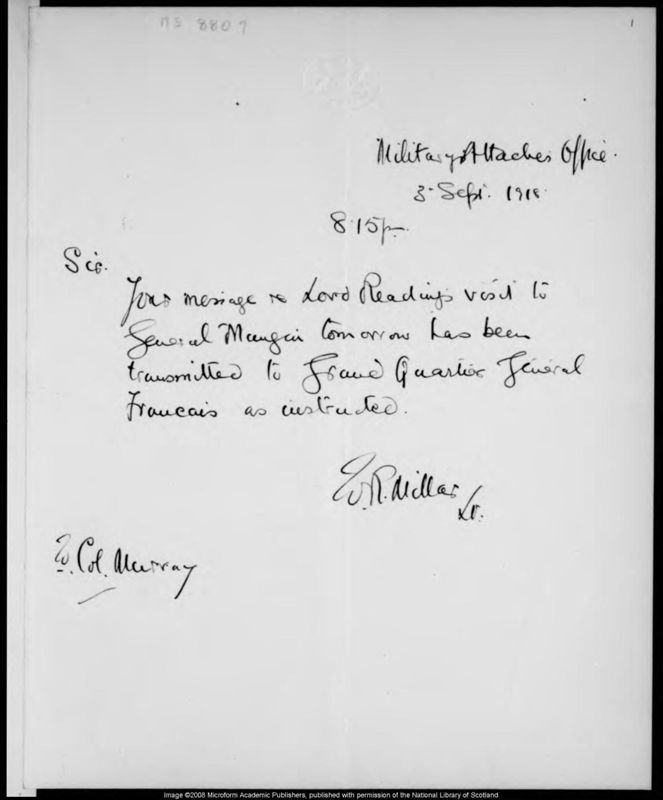 MS 8807
1
Military Attaches Office.
3 Sept. 1918
8.15 p.m.
Sir.
Your message re Lord Reading's visit to
General Mangin tomorrow has been
transmitted to Grand Quartier Général
Francais as instructed.
W.R. Millar
Lt.
Col. Murray
Image ©2008 Microform Academic Publishers, published with permission of the National Library of Scotland